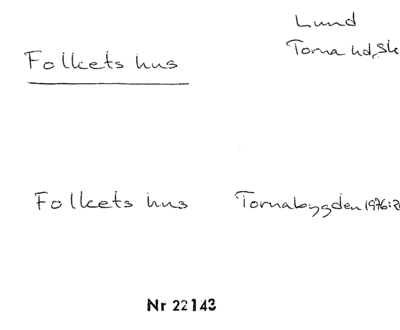 Lund
Torna hd, Sk
Folkets hus
Folkets hus Tornabygden 1976:
Nr 22143